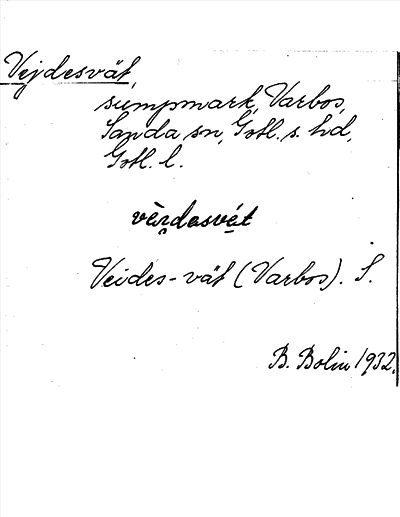 Vejdesvät,
sumpmark, Varbos,
Sanda sn, Gotl. s. hd,
Gotl. l.
vèi̯dasvét
Veides-vät (Varbos). S.
B. Bolin 1932.